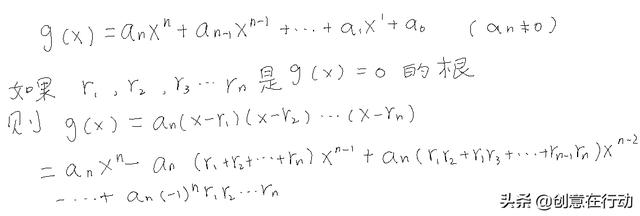 g(x)=aₙxⁿ+aₙ₋₁xⁿ⁻¹+···+a₁x¹+a₀ (aₙ≠0)
如果 r₁, r₂, r₃···rₙ 是 g(x)=0 的根
则 g(x)=aₙ(x-r₁)(x-r₂)···(x-rₙ)
=aₙxⁿ-aₙ(r₁+r₂+···+rₙ)xⁿ⁻¹+aₙ(r₁r₂+r₁r₃+···+rₙ₋₁rₙ)xⁿ⁻²
-···+aₙ(-1)ⁿr₁r₂···rₙ
头条 @创意在行动